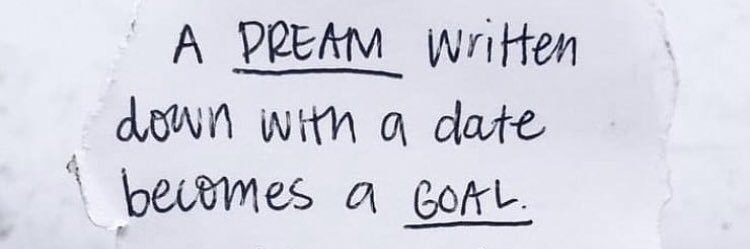 A DREAM written
down with a date
becomes a GOAL.